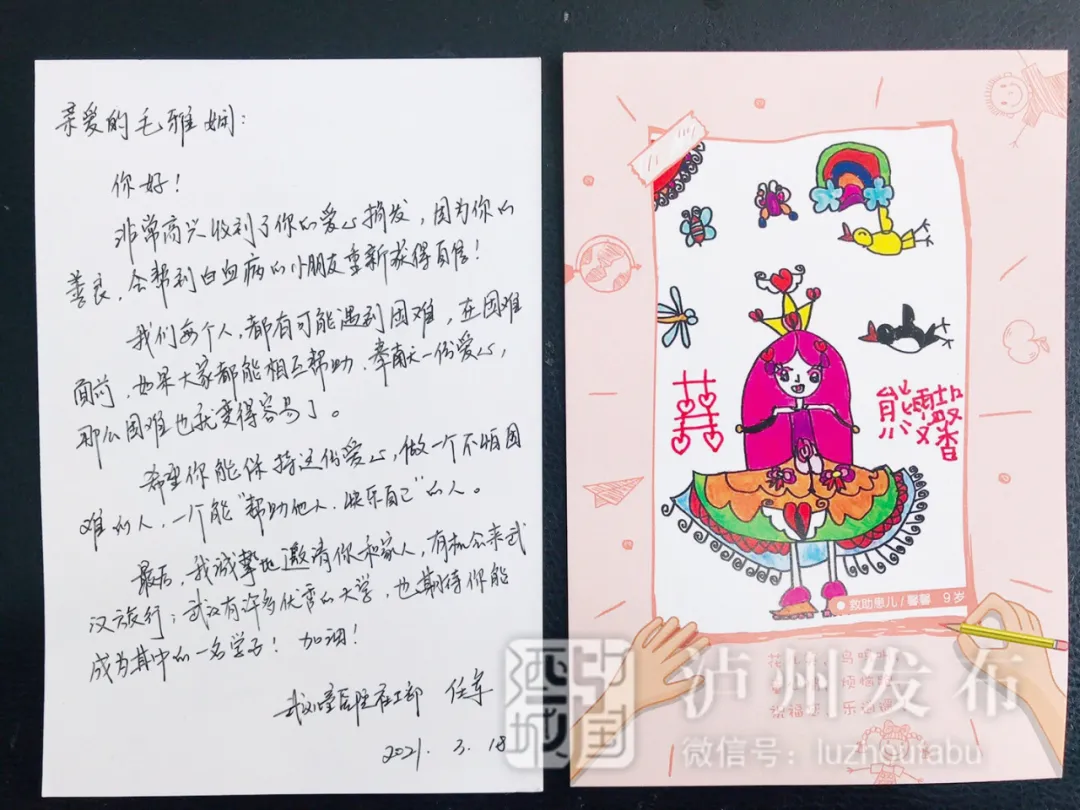 亲爱的毛雅娴：
你好！
非常高兴收到了你的爱心捐发，因为你的
善良，会帮到白血病的小朋友重新获得自信！
我们每个人，都有可能遇到困难，在困难
面前，如果大家都能相互帮助，奉献一份爱心，
那么困难也就变得容易了。
希望你能保持这份爱心，做一个不怕困
难的人，一个能“帮助他人，快乐自己”的人。
最后，我诚挚地邀请你和家人，有机会来武
汉旅行；武汉有许多优秀的大学，也期待你能
成为其中的一名学子！加油！
社工部 任军
2021. 3. 18
囍
熊
馨
救助患儿 / 馨馨 9岁
烦恼
祝福
乐
中国酒城
泸州发布
微信号：luzhoufabu